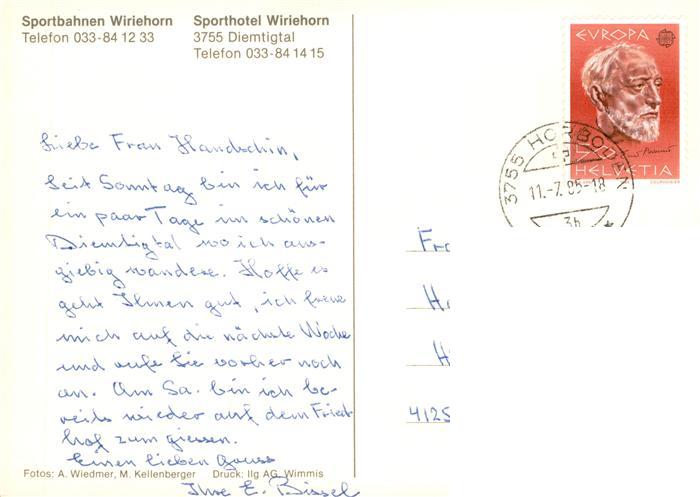 Sportbahnen Wiriehorn
Telefon 033-84 12 33
Sporthotel Wiriehorn
3755 Diemtigtal
Telefon 033-84 14 15
EVROPA
HELVETIA
3755 HORBODEN
11.-7.85-18
Liebe Frau Handschin,
Seit Sonntag bin ich für
ein paar Tage im schönen
Diemtigtal wo ich aus-
giebig wandere. Hoffe es
geht Ihnen gut, ich freue
mich auf die nächste Woche
und rufe Sie vorher noch
an. Am Sa. bin ich be-
reits wieder auf dem Fried
hof zum giessen.
Einen lieben Gruss
Ihre E. Bissel
Fra
H
H
4125
Fotos: A. Wiedmer, M. Kellenberger Druck: Ilg AG, Wimmis